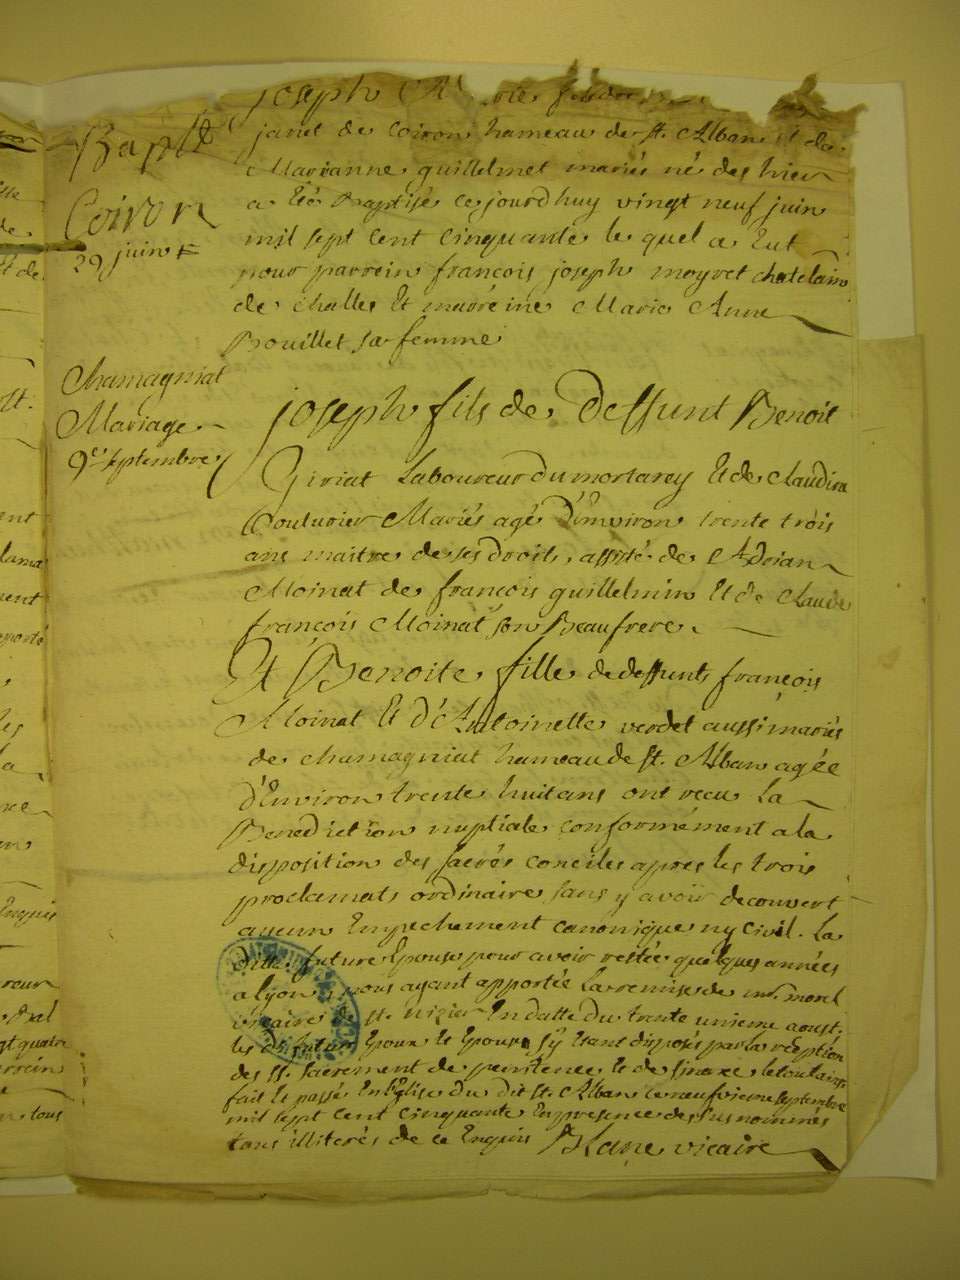 Bapt
Coiron
29 juin
joseph
janet de Coiron hameau de st. Alban et de
Marianne guillelmet mariés né des hier
a Eté Baptisé ce jourd huy vingt neuf juin
mil sept Cent Cinquante le quel a Eut
pour parrein françois joseph moyret chatelain
de challes Et marréine Marie Anne
Bouillet sa femme
Chamagniat
Mariage
9e septembre
joseph fils de deffunt Benoit
Giriat Laboureur du mortarey Et de Claudine
Couturier Mariés agé D'Environ trente trois
ans maitre de ses droits, assisté de Adrian
Moinat de françois guillelmin Et de Claude
françois Moinat son Beaufrere
Et Benoite fille de deffunts françois
Moinat Et d'Antoinette verdet aussi mariés
de chamagniat hameau de st. Alban agée
d'Environ trente huit ans ont recu La
Benediction nuptiale conformément a la
disposition des sacrés conciles apres les trois
proclamats ordinaire sans y avoir decouvert
aucun Empechement canonique ny Civil. La
ditte future Epouse pour avoir restée quelques années
a lyon nous ayant apportée La remise de mr. morel
vicaire de st. nizier En datte du trente unieme aoust.
les dits futurs Epoux Et Epouse s'y Etant disposés par la reception
des st. sacrement de penitence Et de sinaxe le tout ainsi
fait Et passé En l'Eglise du dit st. Alban le neufvieme septembre
mil sept Cent Cinquante En presence des sus nommés
tous illiterés de ce Enquis Blanc vicaire